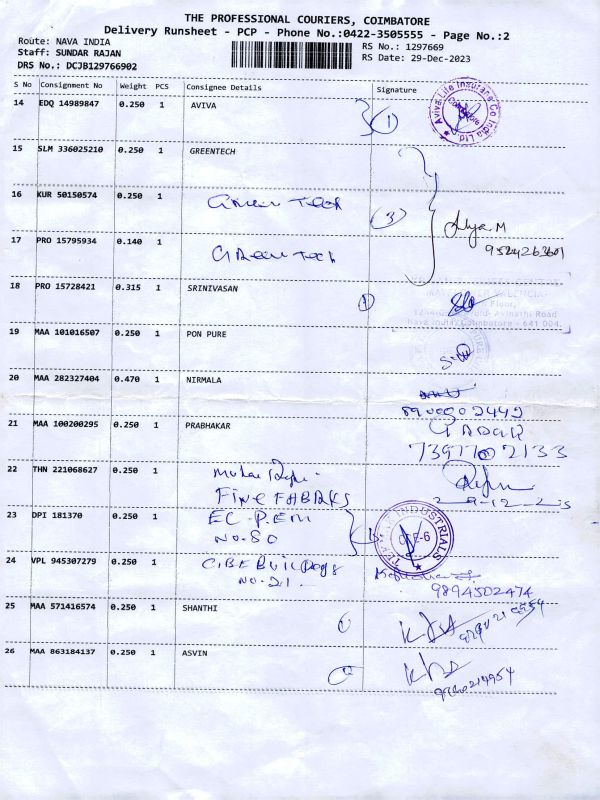 THE PROFESSIONAL COURIERS, COIMBATORE
Delivery Runsheet - PCP - Phone No.:0422-3505555 - Page No.:2
Route: NAVA INDIA
Staff: SUNDAR RAJAN
DRS No.: DCJB129766902
RS No.: 1297669
RS Date: 29-Dec-2023
S No Consignment No Weight PCS Consignee Details Signature
14 EDQ 14989847 0.250 1 AVIVA 1
Aviva Life Insurance Co India Ltd
15 SLM 336025210 0.250 1 GREENTECH
16 KUR 50150574 0.250 1 Green Tech 3
9524263601
17 PRO 15795934 0.140 1 Green Tech
18 PRO 15728421 0.315 1 SRINIVASAN 1
Floor,
Avinashi Road
Nava India, Coimbatore - 641 004.
19 MAA 101016507 0.250 1 PON PURE
20 MAA 282327404 0.470 1 NIRMALA
8900002442
21 MAA 100200295 0.250 1 PRABHAKAR
7397702133
22 THN 221068627 0.250 1
FINE FABRKS
29-12-23
23 DPI 181370 0.250 1 EC-P.EM
NO-80
INDUSTRIALS
CBE-6
24 VPL 945307279 0.250 1 CIBE Buildings
NO-21.
9894502474
25 MAA 571416574 0.250 1 SHANTHI 1
26 MAA 863184137 0.250 1 ASVIN